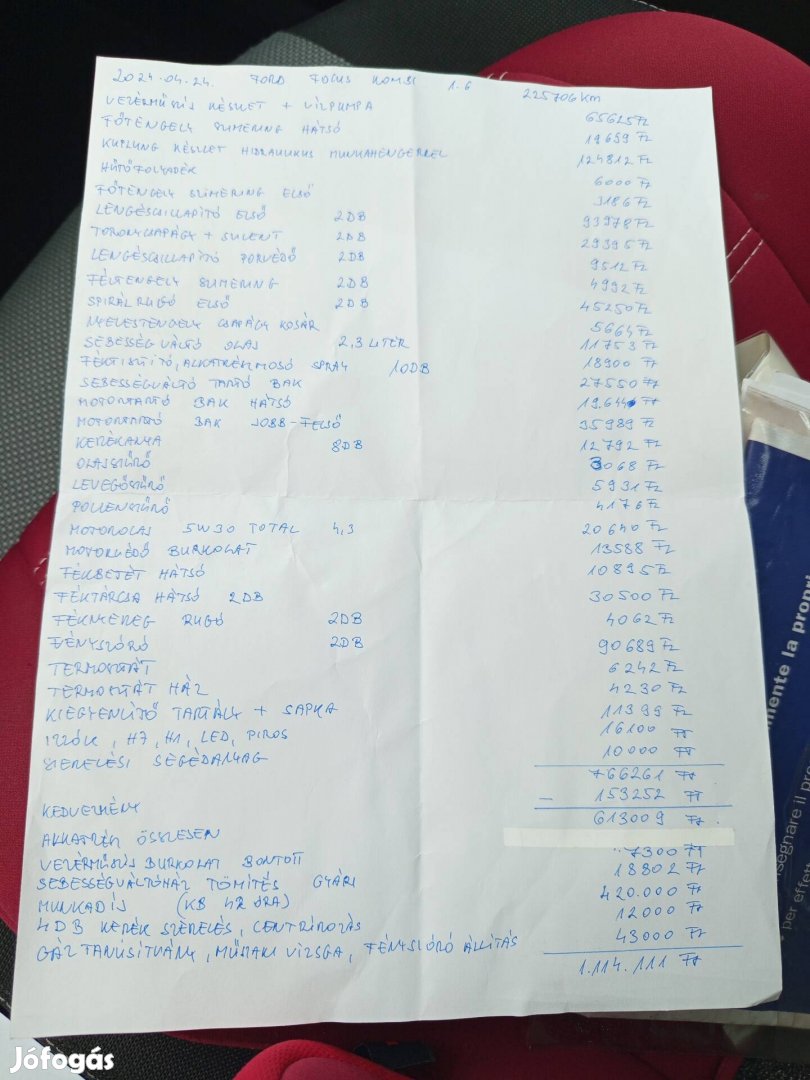 2024.04.24. FORD FOCUS KOMBI 1.6 225706 Km
VEZÉRMŰSZÍJ KÉSZLET + VÍZPUMPA 65625 Ft
FŐTENGELY SZIMERING HÁTSÓ 19699 Ft
KUPLUNG KÉSZLET HIDRAULIKUS MUNKAHENGERREL 124812 Ft
HŰTŐFOLYADÉK 6000 Ft
FŐTENGELY SZIMERING ELSŐ 3186 Ft
LENGÉSCSILLAPÍTÓ ELSŐ 2DB 93978 Ft
TORONYCSAPÁGY + SZILENT 2DB 29395 Ft
LENGÉSCSILLAPÍTÓ PORVÉDŐ 2DB 9512 Ft
FÉLTENGELY SZIMERING 2DB 4992 Ft
SPIRÁLRUGÓ ELSŐ 2DB 45250 Ft
NYELESTENGELY CSAPÁGY KOSÁR 5664 Ft
SEBESSÉGVÁLTÓ OLAJ 2,3 LITER 11753 Ft
FÉKTISZTÍTÓ, ALKATRÉSZMOSÓ SPRAY 10DB 18900 Ft
SEBESSÉGVÁLTÓ TARTÓ BAK 27550 Ft
MOTORTARTÓ BAK HÁTSÓ 19.644 Ft
MOTORTARTÓ BAK JOBB-FELSŐ 35989 Ft
KERÉKANYA 8DB 12792 Ft
OLAJSZŰRŐ 3068 Ft
LEVEGŐSZŰRŐ 5931 Ft
POLLENSZŰRŐ 4176 Ft
MOTOROLAJ 5W30 TOTAL 4,3 20640 Ft
MOTORVÉDŐ BURKOLAT 13588 Ft
FÉKBETÉT HÁTSÓ 10895 Ft
FÉKTÁRCSA HÁTSÓ 2DB 30500 Ft
FÉKNYEREG RUGÓ 2DB 4062 Ft
FÉNYSZÓRÓ 2DB 90689 Ft
TERMOSZTÁT 6242 Ft
TERMOSZTÁT HÁZ 4230 Ft
KIEGYENLÍTŐ TARTÁLY + SAPKA 11399 Ft
IZZÓK, H7, H1, LED, PIROS 16100 Ft
SZERELÉSI SEGÉDANYAG 10000 Ft
766261 Ft
KEDVEZMÉNY - 153252 Ft
ALKATRÉSZ ÖSSZESEN 613009 Ft
VEZÉRMŰSZÍJ BURKOLAT BONTOTT 7300 Ft
SEBESSÉGVÁLTÓHÁZ TÖMÍTÉS GYÁRI 18802 Ft
MUNKADÍJ (KB 42 ÓRA) 420.000 Ft
4DB KERÉK SZERELÉS, CENTRÍROZÁS 12000 Ft
GÁZ TANÚSÍTVÁNY, MŰSZAKI VIZSGA, FÉNYSZÓRÓ ÁLLÍTÁS 43000 Ft
1.114.111 Ft
mente la propri
segnare il pro
per effett
Jófogás